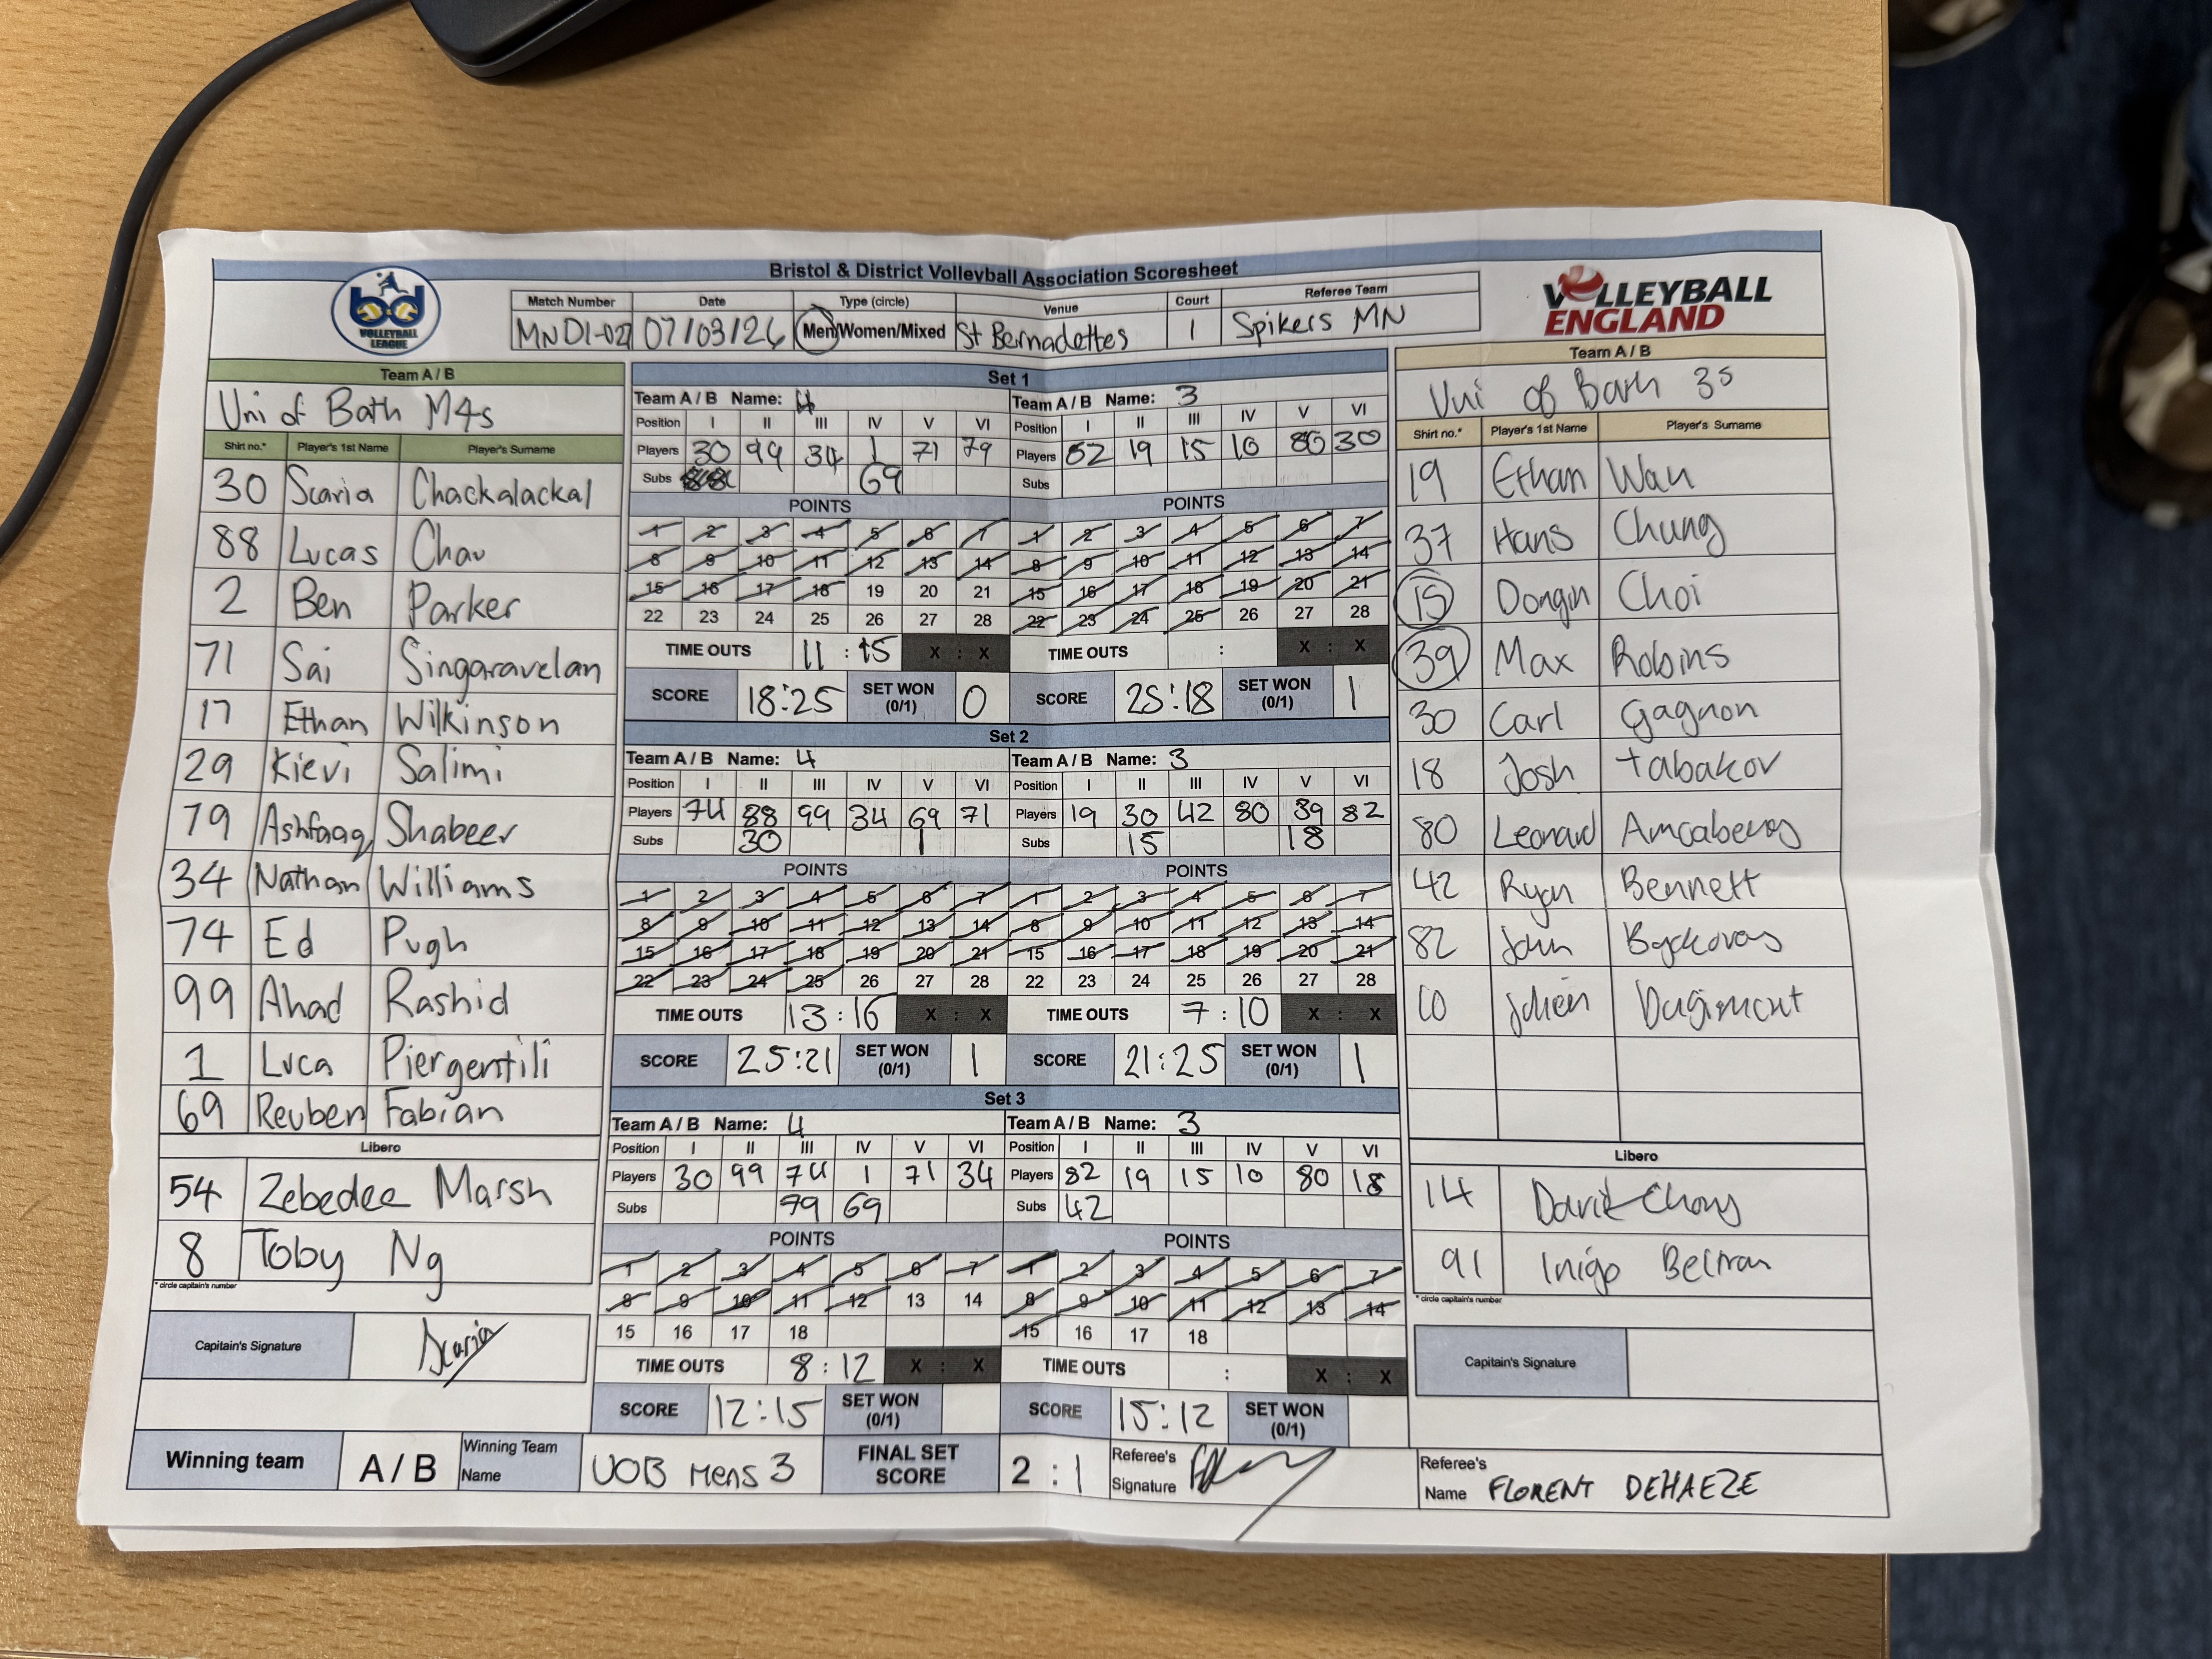 Bristol & District Volleyball Association Scoresheet
bd VOLLEYBALL LEAGUE
Match Number Date Type (circle) Venue Court Referee Team
MND1-027 07/03/26 Men/Women/Mixed St Bernadettes 1 Spikers MN
VOLLEYBALL ENGLAND
Team A / B
Uni of Bath M4s
Shirt no.* Player's 1st Name Player's Surname
30 Scaria Chackalackal
88 Lucas Chau
2 Ben Parker
71 Sai Singaravelan
17 Ethan Wilkinson
29 Kievi Salimi
79 Ashfaaq Shabeer
34 Nathan Williams
74 Ed Pugh
99 Ahad Rashid
1 Luca Piergentili
69 Reuben Fabian
Libero
54 Zebedee Marsh
8 Toby Ng
* circle captain's number
Capitain's Signature Scaria
Set 1
Team A / B Name: 4 Team A / B Name: 3
Position I II III IV V VI Position I II III IV V VI
Players 30 99 34 1 71 79 Players 82 19 15 10 80 30
Subs 69 Subs
POINTS POINTS
1 2 3 4 5 6 7 1 2 3 4 5 6 7
8 9 10 11 12 13 14 8 9 10 11 12 13 14
15 16 17 18 19 20 21 15 16 17 18 19 20 21
22 23 24 25 26 27 28 22 23 24 25 26 27 28
TIME OUTS 11 : 15 X : X TIME OUTS : X : X
SCORE 18:25 SET WON (0/1) 0 SCORE 25:18 SET WON (0/1) 1
Set 2
Team A / B Name: 4 Team A / B Name: 3
Position I II III IV V VI Position I II III IV V VI
Players 74 88 99 34 69 71 Players 19 30 42 80 39 82
Subs 30 1 Subs 15 18
POINTS POINTS
1 2 3 4 5 6 7 1 2 3 4 5 6 7
8 9 10 11 12 13 14 8 9 10 11 12 13 14
15 16 17 18 19 20 21 15 16 17 18 19 20 21
22 23 24 25 26 27 28 22 23 24 25 26 27 28
TIME OUTS 13 : 16 X : X TIME OUTS 7 : 10 X : X
SCORE 25:21 SET WON (0/1) 1 SCORE 21:25 SET WON (0/1) 1
Set 3
Team A / B Name: 4 Team A / B Name: 3
Position I II III IV V VI Position I II III IV V VI
Players 30 99 74 1 71 34 Players 82 19 15 10 80 18
Subs 79 69 Subs 42
POINTS POINTS
1 2 3 4 5 6 7 1 2 3 4 5 6 7
8 9 10 11 12 13 14 8 9 10 11 12 13 14
15 16 17 18 15 16 17 18
TIME OUTS 8 : 12 X : X TIME OUTS : X : X
SCORE 12:15 SET WON (0/1) SCORE 15:12 SET WON (0/1)
Team A / B
Uni of Bath 3s
Shirt no.* Player's 1st Name Player's Surname
19 Ethan Wan
37 Hans Chung
15 Dongin Choi
39 Max Robins
30 Carl Gagnon
18 Josh Tabakov
80 Leonard
42 Ryan Bennett
82 John
10 Julien Dugimont
Libero
14 David Chong
91 Inigo Beltran
* circle captain's number
Capitain's Signature
Winning team A / B Winning Team Name UOB Mens 3 FINAL SET SCORE 2 : 1 Referee's Signature Referee's Name FLORENT DEHAEZE